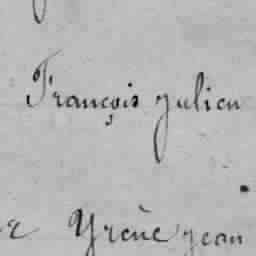 François Julien
Yrène Jean